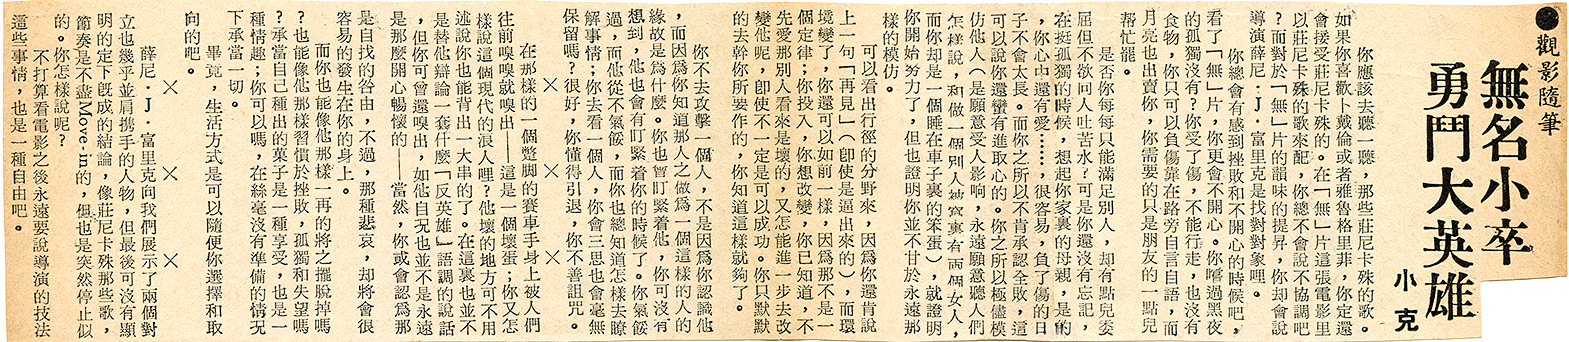 ●觀影隨筆
無名小卒
勇鬥大英雄
小克
你應該去聽一聽，那些莊尼卡殊的歌。
如果你喜歡卜戴倫或者雅魯格里菲，你定還
會接受莊尼卡殊的。在「無」片這張電影里
以莊尼卡殊的歌來配，你總不會說不協調吧
？而對於「無」片的韻味的提昇，你却會說
導演薛尼．J．富里克是找對對象哩。
你總會有感到挫敗和不開心的時候吧，
看了「無」片，你更會不開心。你嚐過黑夜
的孤獨沒有？你受了傷，不能行走，也沒有
食物，你只可以負傷靠在路旁自言自語，而
月亮也出賣你，你需要的只是朋友的一點兒
幫忙罷。
是否你每每只能滿足別人，却有點兒委
屈但不欲向人吐苦水？可是你還沒有忘記，
在挺孤獨的時候，想起你家裏的母親，是的
，你心中還有愛……，很容易，負了傷的日
子不會太長。而你之所以不肯承認全敗，這
可以說你還蠻有進取心的。你之所以極儘模
仿他人（是願意受人影响，永遠願意聽人們
怎樣說，和做一個別人被窩裏有兩個女人，
而你却是一個睡在車子裏的笨蛋），就證明
你開始努力了，但也證明你並不甘於永遠那
樣的模仿。
可以看出行徑的分野來，因爲你還肯說
上一句「再見」（卽使是逼出來的），而環
境變了，你還可以如前一樣，因爲那不是一
個定律；你投入，你想改變，你已知道，不
先愛那別人看來是壞的，又怎能進一步去改
變他呢，卽使不一定是可以成功。你只默默
的去幹你所要作的，你知道這樣就夠了。
你不去攻擊一個人，不是因爲你認識他
，而因爲你知道那人之做爲一個這樣的人的
緣故是爲什麼。你也曾盯緊着他，你可沒有
想到，他也會有盯緊着你的時候了。你氣餒
過，而他從不氣餒，而你也總知道怎樣去瞭
解事情；你去看一個人，你會三思也會毫無
保留嗎？很好，你懂得引退，你不善詛咒。
×　×　×
在那樣的一個蹩脚的賽車手身上被人們
往前嗅嗅就嗅出——這是一個壞蛋；你又怎
樣說這個現代的浪人哩？他壞的地方可不用
述說你也能背出一大串的了。在這裏也並不
是替他辯論一套什麼「反英雄」語調的說話
，但你可曾還嗅出，如他自況也並不是永遠
是那麼開心暢懷的——當然，你或會認爲那
是自找的咎由，不過，那種悲哀，却將會很
容易的發生在你的身上。
而你也能像他那樣一再的將之擺脫掉嗎
？也能像他那樣習慣於挫敗，孤獨和失望嗎
？承當自己種出的菓子是一種享受，也是一
種情趣；你可以嗎，在絲毫沒有準備的情況
下承當一切。
畢竟，生活方式是可以隨便你選擇和取
向的吧。
×　×　×
薛尼．J．富里克向我們展示了兩個對
立也幾乎並肩携手的人物，但最後可沒有顯
明的定下旣成的結論，像莊尼卡殊那些歌，
節奏是不盡Move in的，但也是突然停止似
的。你怎樣說呢？
不打算看電影之後永遠要說導演的技法
這些事情，也是一種自由吧。